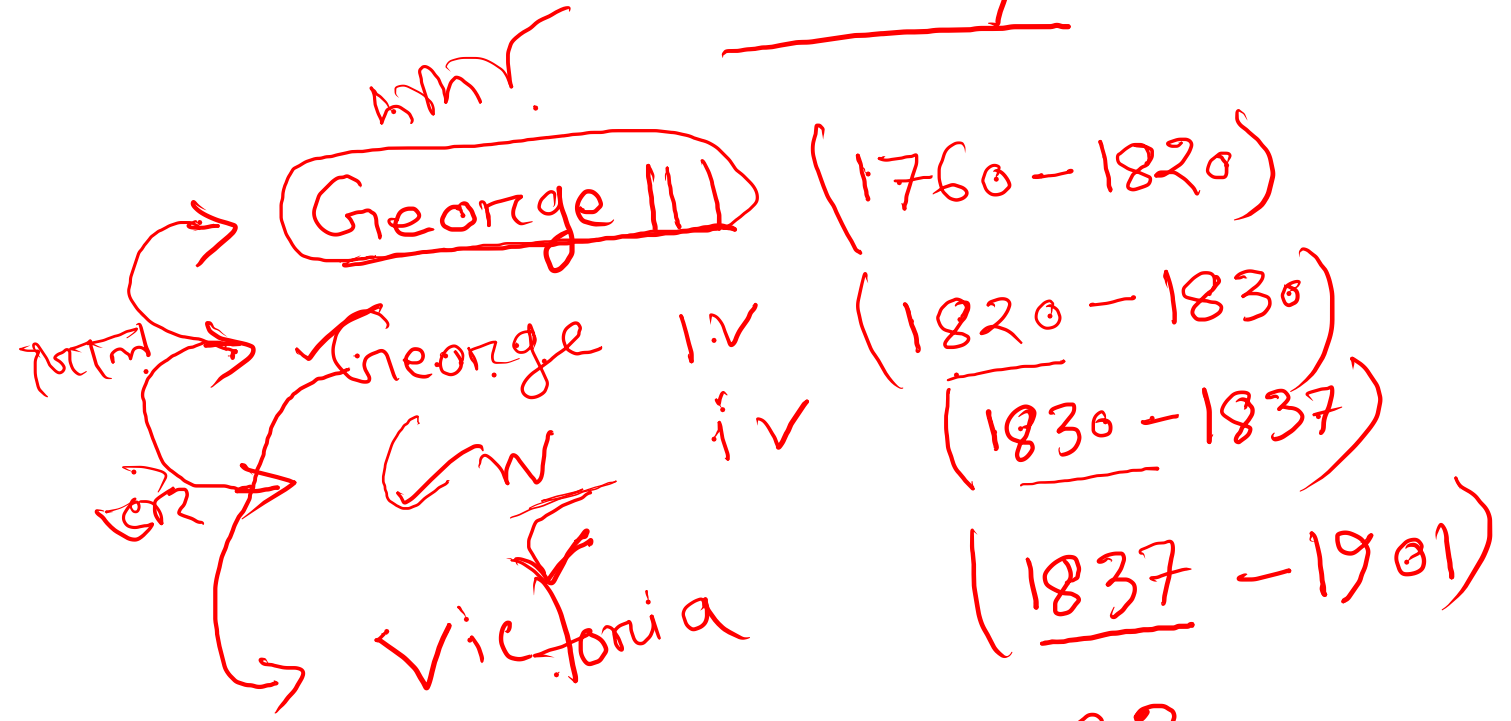 George III (1760 - 1820)
George IV (1820 - 1830)
W iv (1830 - 1837)
Victoria (1837 - 1901)